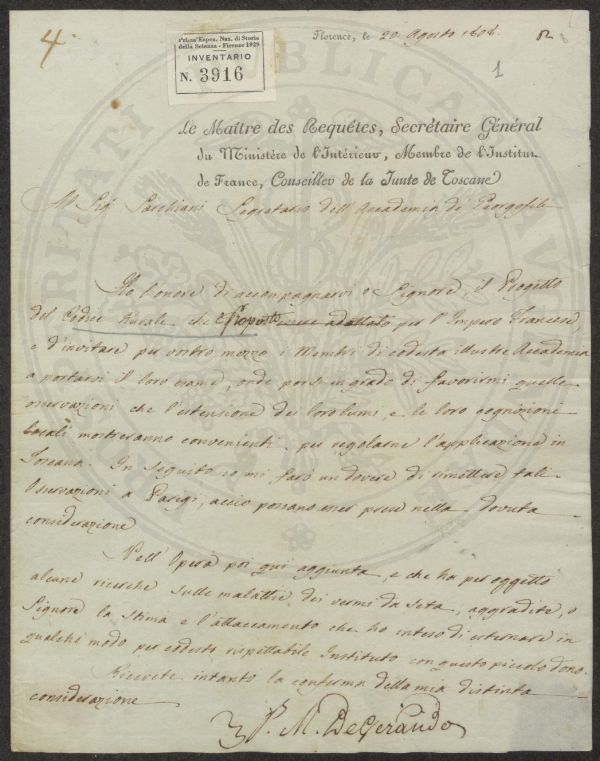 4
Prima Espos. Naz. di Storia
della Scienza - Firenze 1929
INVENTARIO
N. 3916
Florence, le 20. Agosto 1808.
1
Le Maître des Requêtes, Secrétaire Général
du Ministère de l'Intérieur, Membre de l'Institut
de France, Conseiller de la Junte de Toscane
Al Sigr. Sarchiani Segretario dell'Accademia de' Georgofili
Ho l'onore di accompagnarvi o Signore, il Progetto
del Codice Rurale che proposto adattato per l'Impero Francese,
e d'invitare per vostro mezzo i Membri di codesta illustre Accademia
a portarvi il loro esame, onde porsi in grado di favorirmi quelle
osservazioni che l'estensione dei loro lumi, e le loro cognizioni
locali mostreranno convenienti per regolarne l'applicazione in
Toscana. In seguito io mi farò un dovere di rimettere tali
Osservazioni a Parigi, acciò possano esser prese nella dovuta
considerazione
Nell'Opera poi qui aggiunta, e che ha per oggetto
alcune ricerche sulle malattie dei vermi da seta, aggradite, o
Signore la stima e l'attaccamento che ho inteso di esternare in
qualche modo per codesto rispettabile Instituto con questo piccolo dono.
Ricevete intanto la conferma della mia distinta
considerazione
J. M. DeGerando